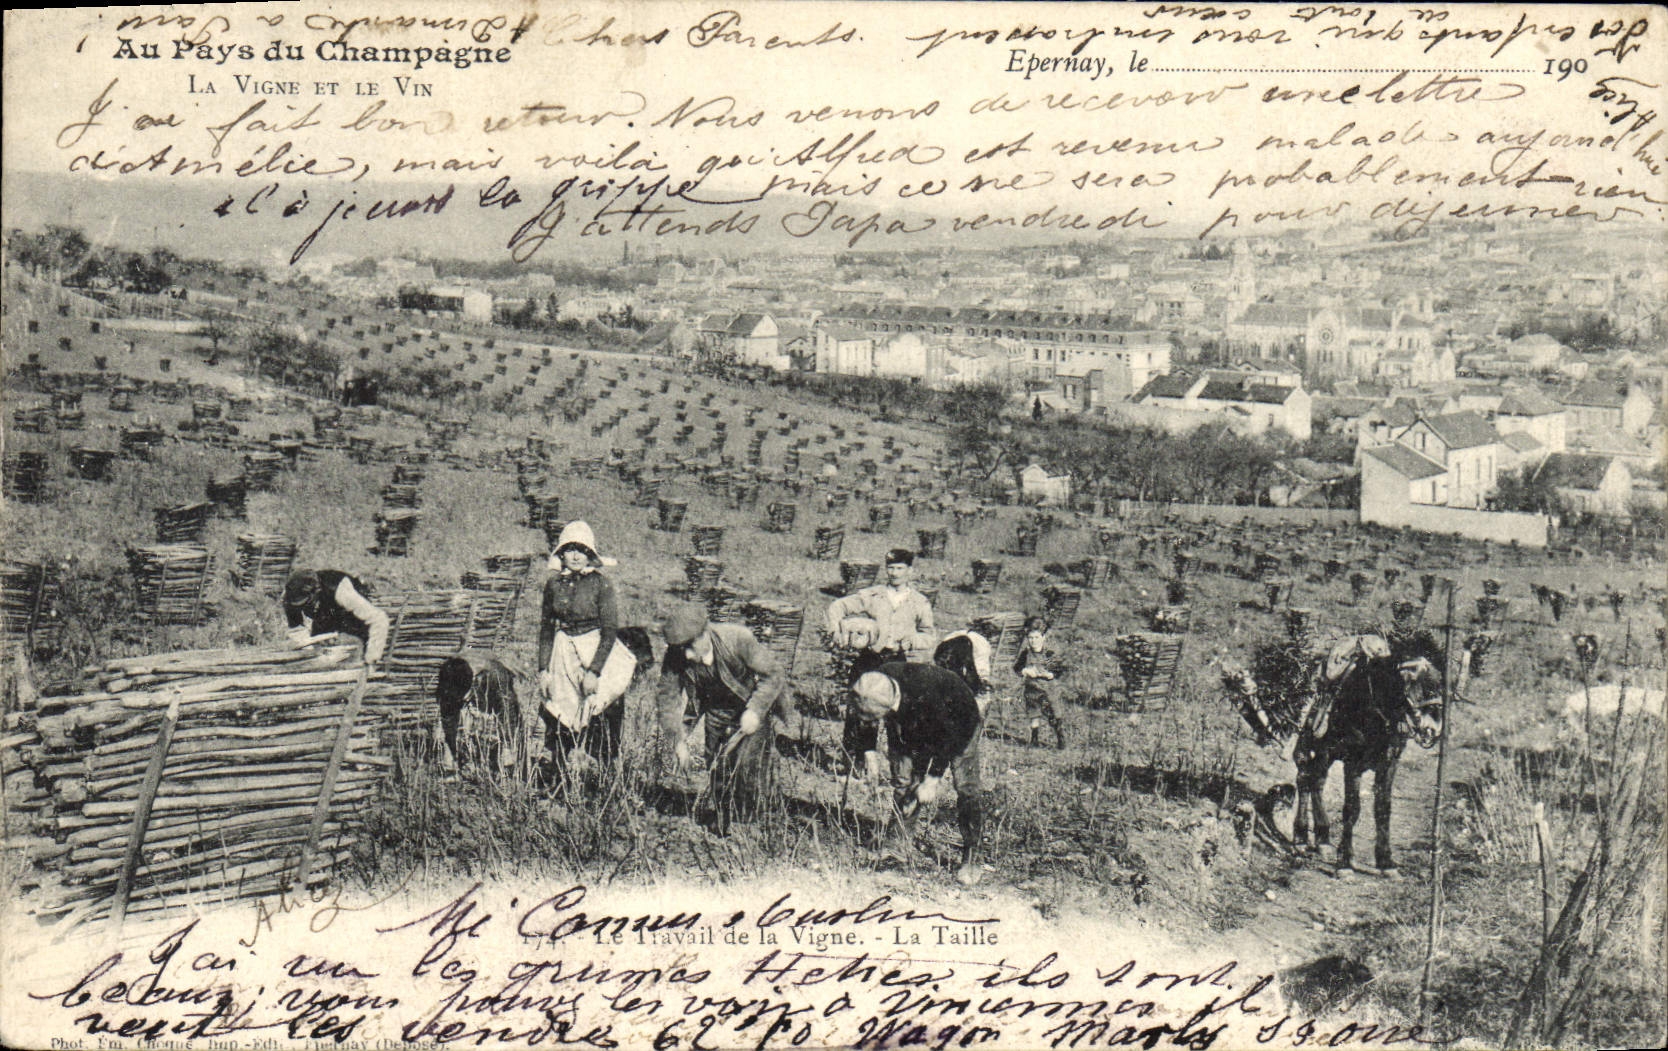 Chers Parents.
Au Pays du Champagne
La Vigne et le Vin
Epernay, le 190
J'ai fait bon retour. Nous venons de recevoir une lettre
d'Amélie, mais voilà qu'Alfred est revenu malade aujourd'hui
il à toujours la grippe mais ce ne sera probablement rien
J'attends Papa vendredi pour déjeuner.
à Dimanche à
vos enfants qui vous embrassent
de tout cœur
Alice
174. - Le Travail de la Vigne. - La Taille
J'ai vu les ils sont
beaux; vous pouvez les voir à Vincennes il
veut les vendre 62 Wagon
Phot. Em. Choqué, Imp.-Edit., Epernay (Déposé).